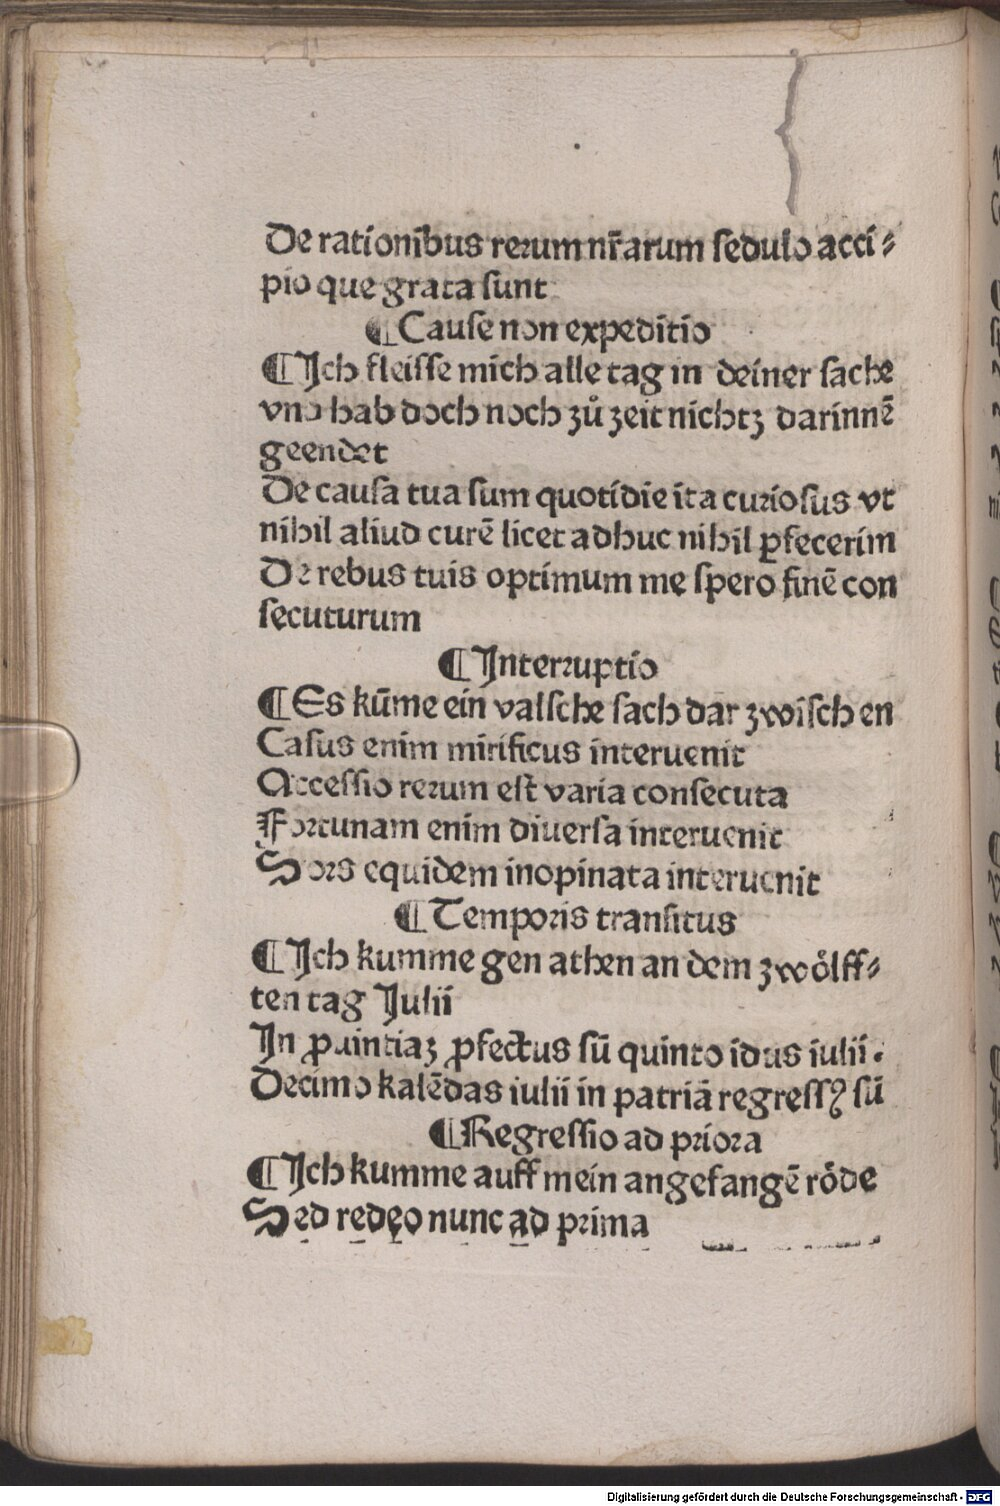 De rationibus rerum nr̄arum sedulo acci⸗
pio que grata sunt
¶Cause non expeditio
¶Ich fleisse mich alle tag in deiner sache
vnd hab doch noch zů zeit nichtz darinnē
geendet
De causa tua sum quotidie ita curiosus vt
nihil aliud curē licet adhuc nihil ꝑfecerim
De rebus tuis optimum me spero finē con
secuturum
¶Interruptio
¶Es kūme ein valsche sach dar zwischen
Casus enim mirificus interuenit
Accessio rerum est varia consecuta
Fortunam enim diuersa interuenit
Sors equidem inopinata interuenit
¶Temporis transitus
¶Ich kumme gen athen an dem zwölff⸗
ten tag Julii
In ꝓuintiaz ꝓfectus sū quinto idus iulii.
Decimo kalēdas iulii in patriā regressꝰ sū
¶Regressio ad priora
¶Ich kumme auff mein angefangē röde
Sed redeo nunc ad prima
Digitalisierung gefördert durch die Deutsche Forschungsgemeinschaft - DFG